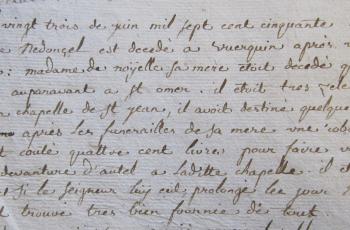 vingt trois de juin mil sept cent cinquante
e Nedonçel est decedé a vuerquin après
: madame de noyelle sa mere etoit decedé q
auparavant a st omer. il étoit tres zele
chapelle de st jean, il avoit destiné quelque
après les funerailles de sa mere vne
t couté quattre cent livres pour faire v
devanture d'autel a laditte chapelle. il et
t si le seigneur luy eut prolongé les jour
t trouvé tres bien fournée de tout.